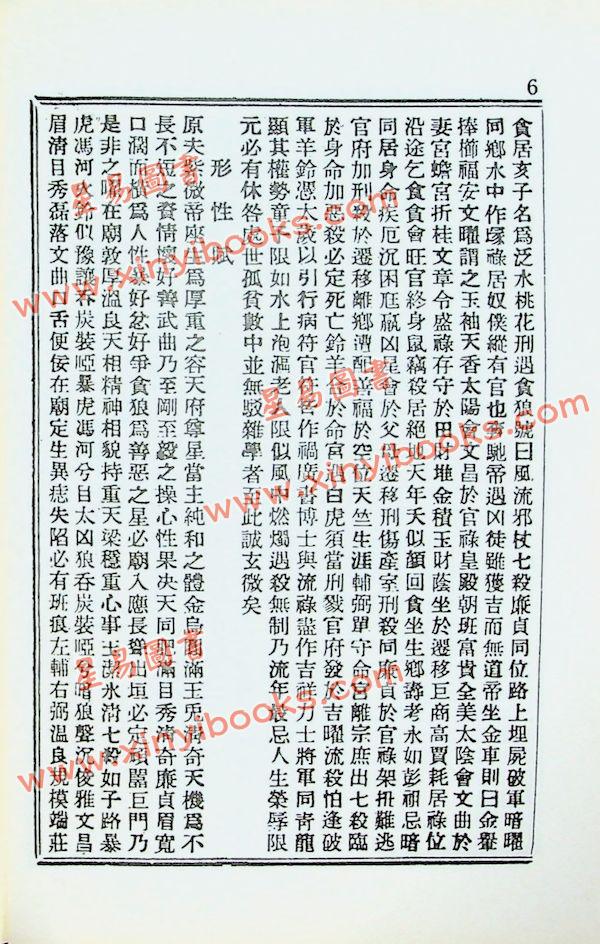 6
貪居亥子名為泛水桃花刑遇貪狼號曰風流邪杖七殺廉貞同位路上埋屍破軍暗曜
同鄉水中作塚祿居奴僕縱有官也奔馳帝遇凶徒雖獲吉而無道帝坐金車則曰金轝
捧櫛福安文曜謂之玉袖天香太陽會文昌於官祿皇殿朝班富貴全美太陰會文曲於
妻宮蟾宮折桂文章令盛祿存守於田財堆金積玉財蔭坐於遷移巨商高賈耗居祿位
沿途乞食貪會旺官終身鼠竊殺居絕地天年夭似顏回貪坐生鄉壽考永如彭祖忌暗
同居身命疾厄沉困尫羸凶星會於父母遷移刑傷產室刑殺同廉貞於官祿架扭難逃
官府加刑殺於遷移離鄉遭配善福於空位天竺生涯輔弼單守命宮離宗庶出七殺臨
於身命加惡殺必定死亡鈴羊合於命宮遇白虎須當刑戮官府發於吉曜流殺怕逢破
軍羊鈴憑太歲以引行病符官符皆作禍廣書博士與流祿盡作吉祥力士將軍同青龍
顯其權勢童子限如水上泡漚老人限似風中燃燭遇殺無制乃流年最忌人生榮辱限
元必有休咎處世孤貧數中並無駁雜學者至此誠玄微矣
形性賦
原夫紫微帝座生為厚重之容天府尊星當主純和之體金烏圓滿玉兔清奇天機為不
長不短之資情懷好善武曲乃至剛至毅之操心性果決天同肥滿目秀清奇廉貞眉寬
口濶面橫為人性暴好忿好爭貪狼為善惡之星必廟入應長聳出垣必定頑嚚巨門乃
是非之曜在廟敦厚溫良天相精神相貌持重天梁穩重心事玉潔氷清七殺如子路暴
虎馮河火鈴似豫讓吞炭裝啞暴虎馮河兮目太凶狼吞炭裝啞兮暗狼聲沉俊雅文昌
眉清目秀磊落文曲口舌便佞在廟定生異痣失陷必有班痕左輔右弼溫良規模端莊
星易圖書
www.xinyibooks.com
星易圖書
www.xinyibooks.com
星易圖書
www.xinyibooks.com
星易圖書
www.xinyibooks.com